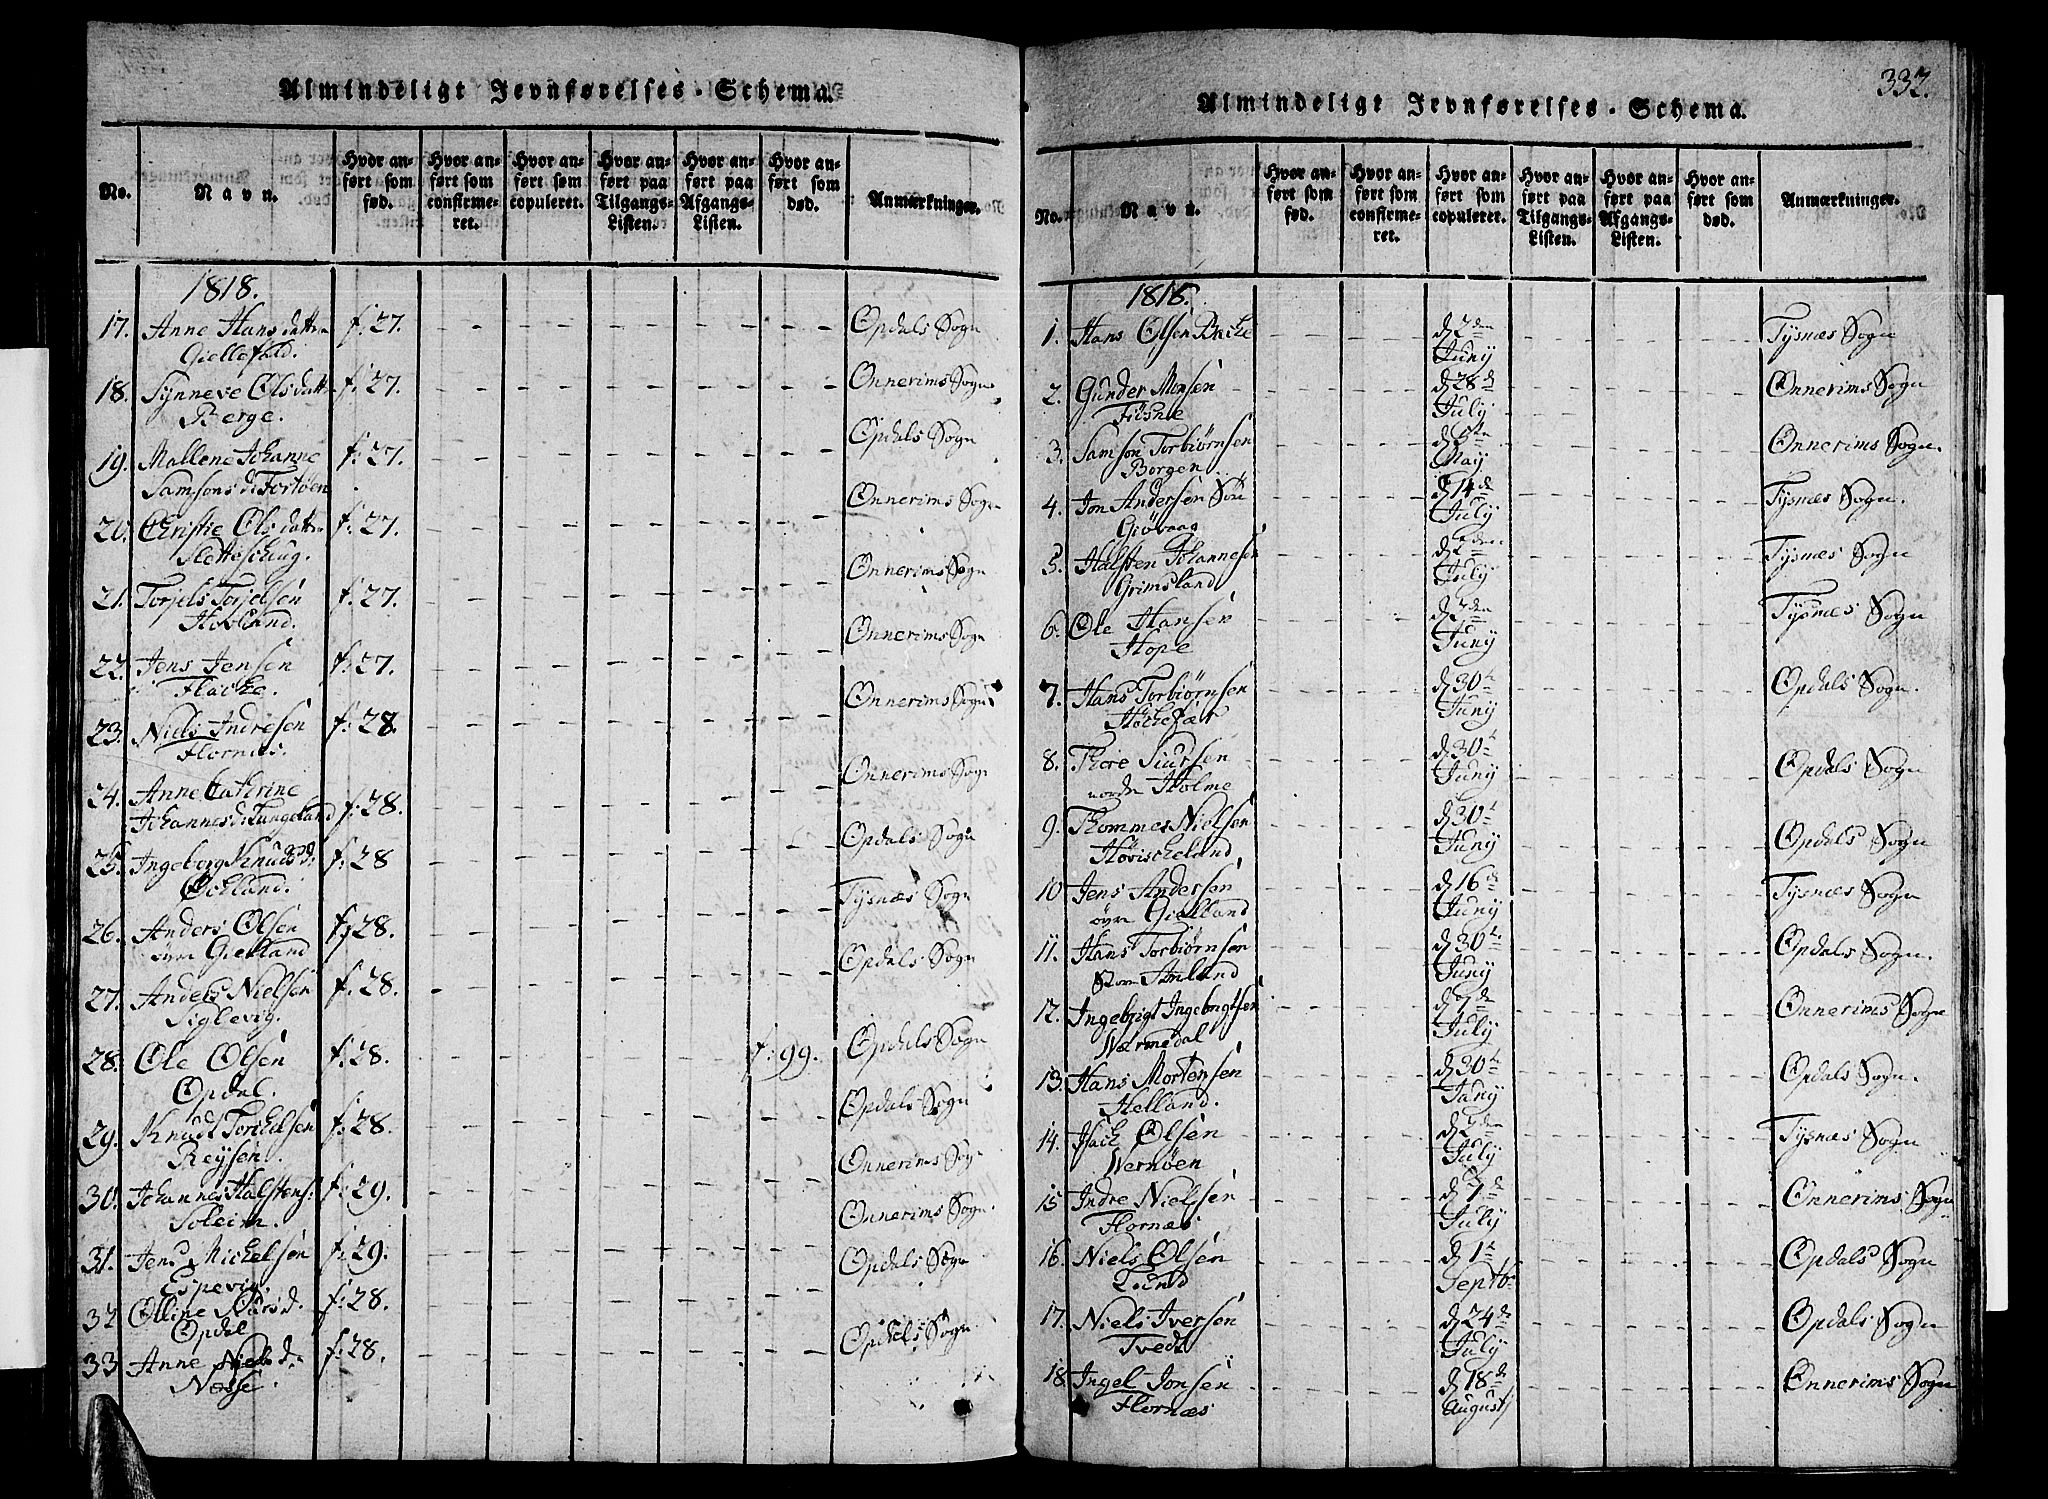 Almindeligt Jevnførelses-Schema.
No. Navn. Hvor anført som fød. Hvor anført som confirmeret. Hvor anført som copuleret. Hvor anført paa Tilgangs-Listen. Hvor anført paa Afgangs-Listen. Hvor anført som død. Anmærkninger.
1818.
17. Anne Hansdatter f: 27. Opdals Sogn
Giellefald.
18. Synneve Olsdatter f: 27. Onnerims Sogn
Berge.
19. Mallene Johanne f: 27. Opdals Sogn
Samsons d: Tortøen
20. Christie Olsdatter f: 27. Onnerims Sogn
Flatteschug.
21. Torjels Torjelsen f: 27. Onnerims Sogn
Hovland.
22. Jens Jensen f: 27. Onnerims Sogn
Flacke.
23. Niels Andresen f: 28. Onnerims Sogn
Flornæs.
24. Anne Cathrine f: 28. Onnerims Sogn
Johannes d: Tungeland
25. Ingeborg Knuds d: f: 28 Opdals Sogn
Ochland.
26. Anders Olsen f: 28. Tysnæs Sogn
øvre Gielland
27. Anders Nielsen f: 28. Opdals Sogn
Siglevig.
28. Ole Olsen f: 28. f: 99. Opdals Sogn
Opdal.
29. Knudt Torchelsen f: 28. Opdals Sogn
Reysen.
30. Johannes Halstens: f: 29. Onnerims Sogn
Soleim.
31. Jens Michelsen f: 29. Onnerims Sogn.
Espevig.
32 Olline d. f: 28. Opdals Sogn
Opdal
33 Anne Niels d. f: 28. Opdals Sogn
Næsse.
332.
Almindeligt Jevnførelses-Schema.
No. Navn. Hvor anført som fød. Hvor anført som confirmeret. Hvor anført som copuleret. Hvor anført paa Tilgangs-Listen. Hvor anført paa Afgangs-Listen. Hvor anført som død. Anmærkninger.
1816.
1. Hans Olsen Brecke d 2den Tysnæs Sogn
Juny
2. Gunder Monsen d 28d Onnerims Sogn
Fusne July
3. Samson Torbiørnsen d 5te Onnerims Sogn.
Borgen May
4. Jon Andersen Søn d 14de Tysnæs Sogn.
Giøvaag July
5. Halsten Johannesen d 2den Tysnæs Sogn
Grimsland July
6. Ole Hansen d 2den Tysnæs Sogn
Hope Juny
7. Hans Torbiørnsen d 30te Opdals Sogn.
Høchefær Juny
8. Thore Siursen d 30te Opdals Sogn
nordre Holme Juny
9. Thommes Nielsen d 30t Opdals Sogn
Høvischeland Juny
10 Jens Andersen d 16de Tysnæs Sogn
øvre Gielland Juny
11. Hans Torbiørnsen d 30te Opdals Sogn.
Store Amland Juny
12. Ingebrigt Ingebrigtsen d 7de Onnerims Sogn
Wærmedal July
13. Hans Mortensen d 30te Opdals Sogn.
Helland. Juny
14. Isach Olsen d 2den Tysnæs Sogn
Wernøen July
15 Indre Nielsen d 7d Onnerims Sogn
Flornæs July
16. Niels Olsen d 1te Opdals Sogn
Lund Septb.
17. Niels Iversen d 24de Opdals Sogn
Tvedt July
18. Ingel Jonsen d 18de Onnerims Sogn
Flornæs August